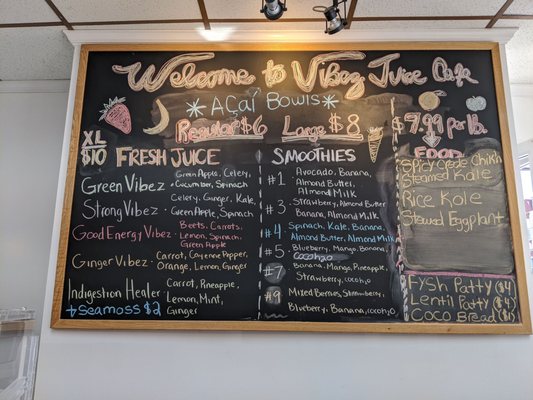 Welcome to Vibez Juice Cafe
* Açaí Bowls *
Regular $6 Large $8
$7.99 per lb.
FOOD
XL
$10 FRESH JUICE
Green Vibez · Green Apple, Celery,
Cucumber, Spinach
Strong Vibez · Celery, Ginger, Kale,
Green Apple, Spinach
Good Energy Vibez · Beets, Carrots,
Lemon, Spinach,
Green Apple
Ginger Vibez · Carrot, Cayenne Pepper,
Orange, Lemon, Ginger
Indigestion Healer · Carrot, Pineapple,
Lemon, Mint,
Ginger
+ seamoss $2
SMOOTHIES
#1 · Avocado, Banana,
Almond Butter,
Almond Milk
#3 · Strawberry, Almond Butter
Banana, Almond Milk
#4 · Spinach, Kale, Banana,
Almond Butter, Almond Milk
#5 · Blueberry, Mango, Banana,
cocoh2o
#7 · Banana, Mango, Pineapple,
Strawberry, cocoh2o
#9 · Mixed Berries, Strawberry,
Blueberry, Banana, cocoh2o
Steamed Kale
Rice Kole
Stewed Eggplant
Fysh Patty ($4)
Lentil Patty ($4)
Coco Bread